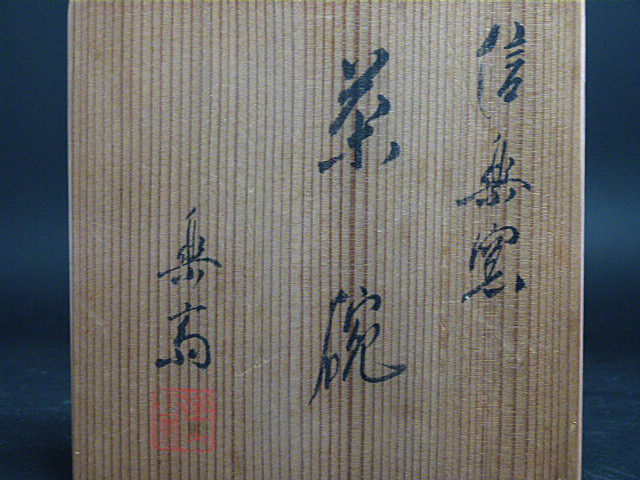 信楽窯
茶碗
楽斎